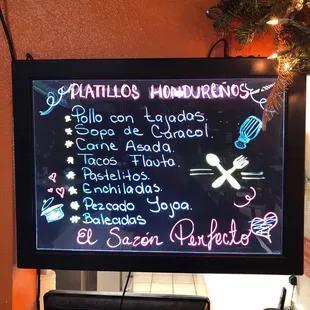 PLATILLOS HONDUREÑOS
Pollo con tajadas.
Sopa de Caracol.
Carne Asada.
Tacos Flauta.
Pastelitos.
Enchiladas.
Pezcado Yojoa.
Baleadas
El Sazón Perfecto